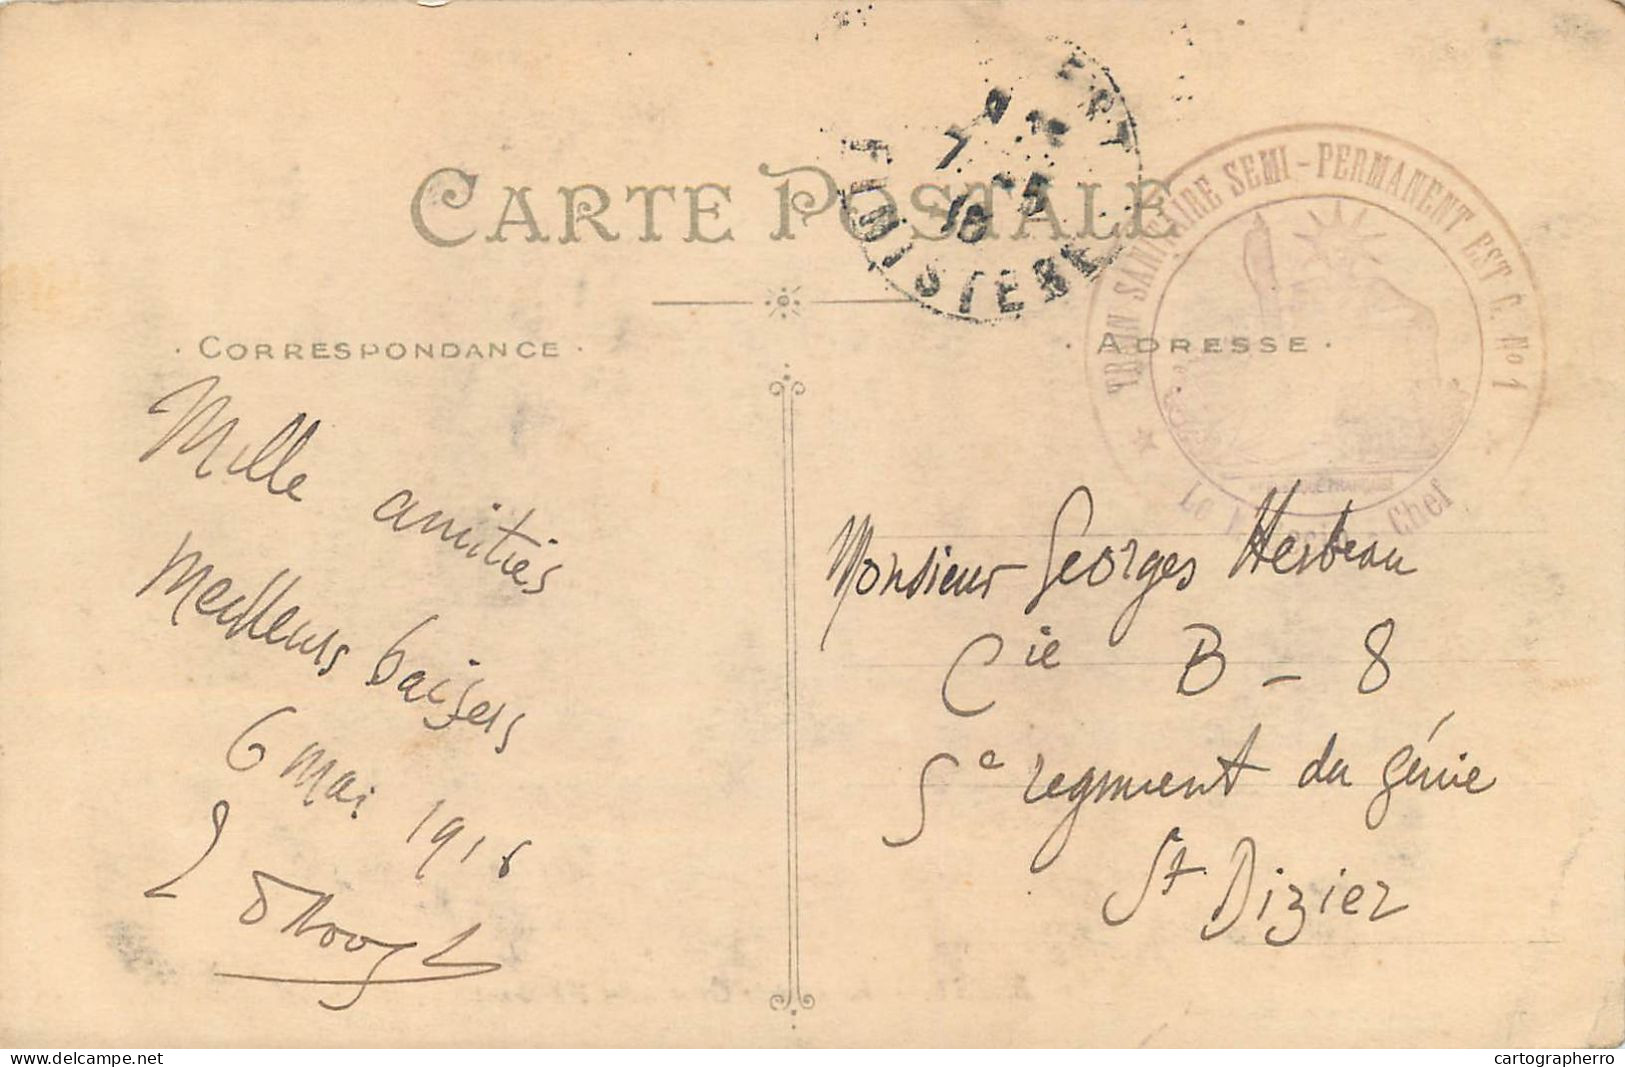 CARTE POSTALE
FINISTERE
TRAIN SANITAIRE SEMI-PERMANENT EST C. No 1
Le Chef
· CORRESPONDANCE ·
· ADRESSE ·
Mille amitiés
Meilleurs baisers
6 mai 1916
Monsieur Georges Herbeau
Cie B - 8
5e regiment du génie
St Dizier
www.delcampe.net
cartographerro